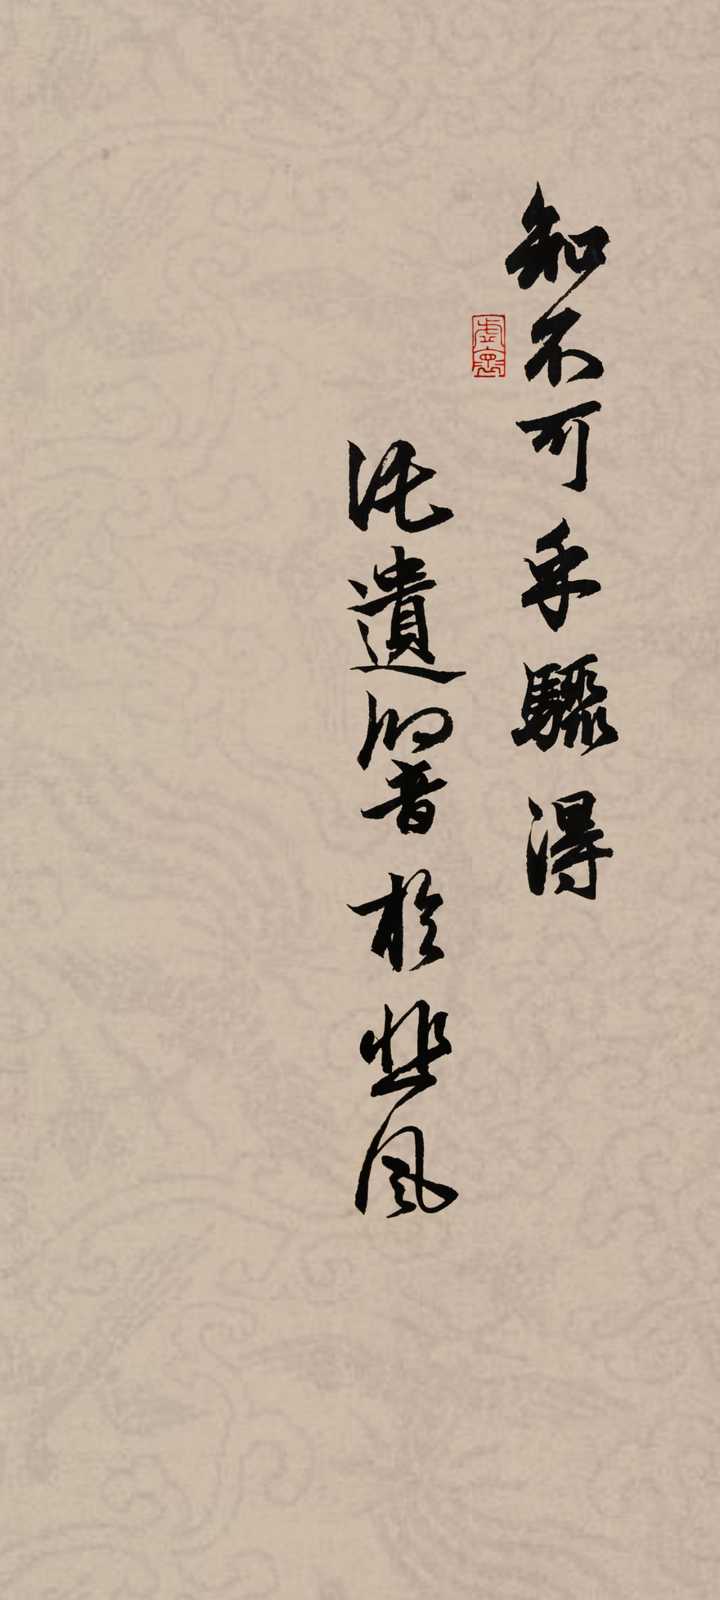 知不可乎驟得
託遺響於悲風